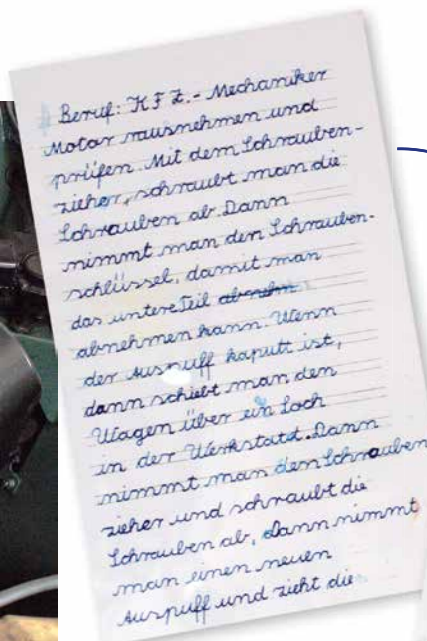 Beruf: K F Z. - Mechaniker
Motor rausnehmen und
prüfen. Mit dem Schrauben-
zieher, schraubt man die
Schrauben ab. Dann
nimmt man den Schrauben-
schlüssel, damit man
das untere Teil abnehm
abnehmen kann. Wenn
der Auspuff kaputt ist,
dann schiebt man den
Wagen über ein Loch
in der Werkstatt. Dann
nimmt man den Schrauben
zieher und schraubt die
Schrauben ab. Dann nimmt
man einen neuen
Auspuff und zieht die